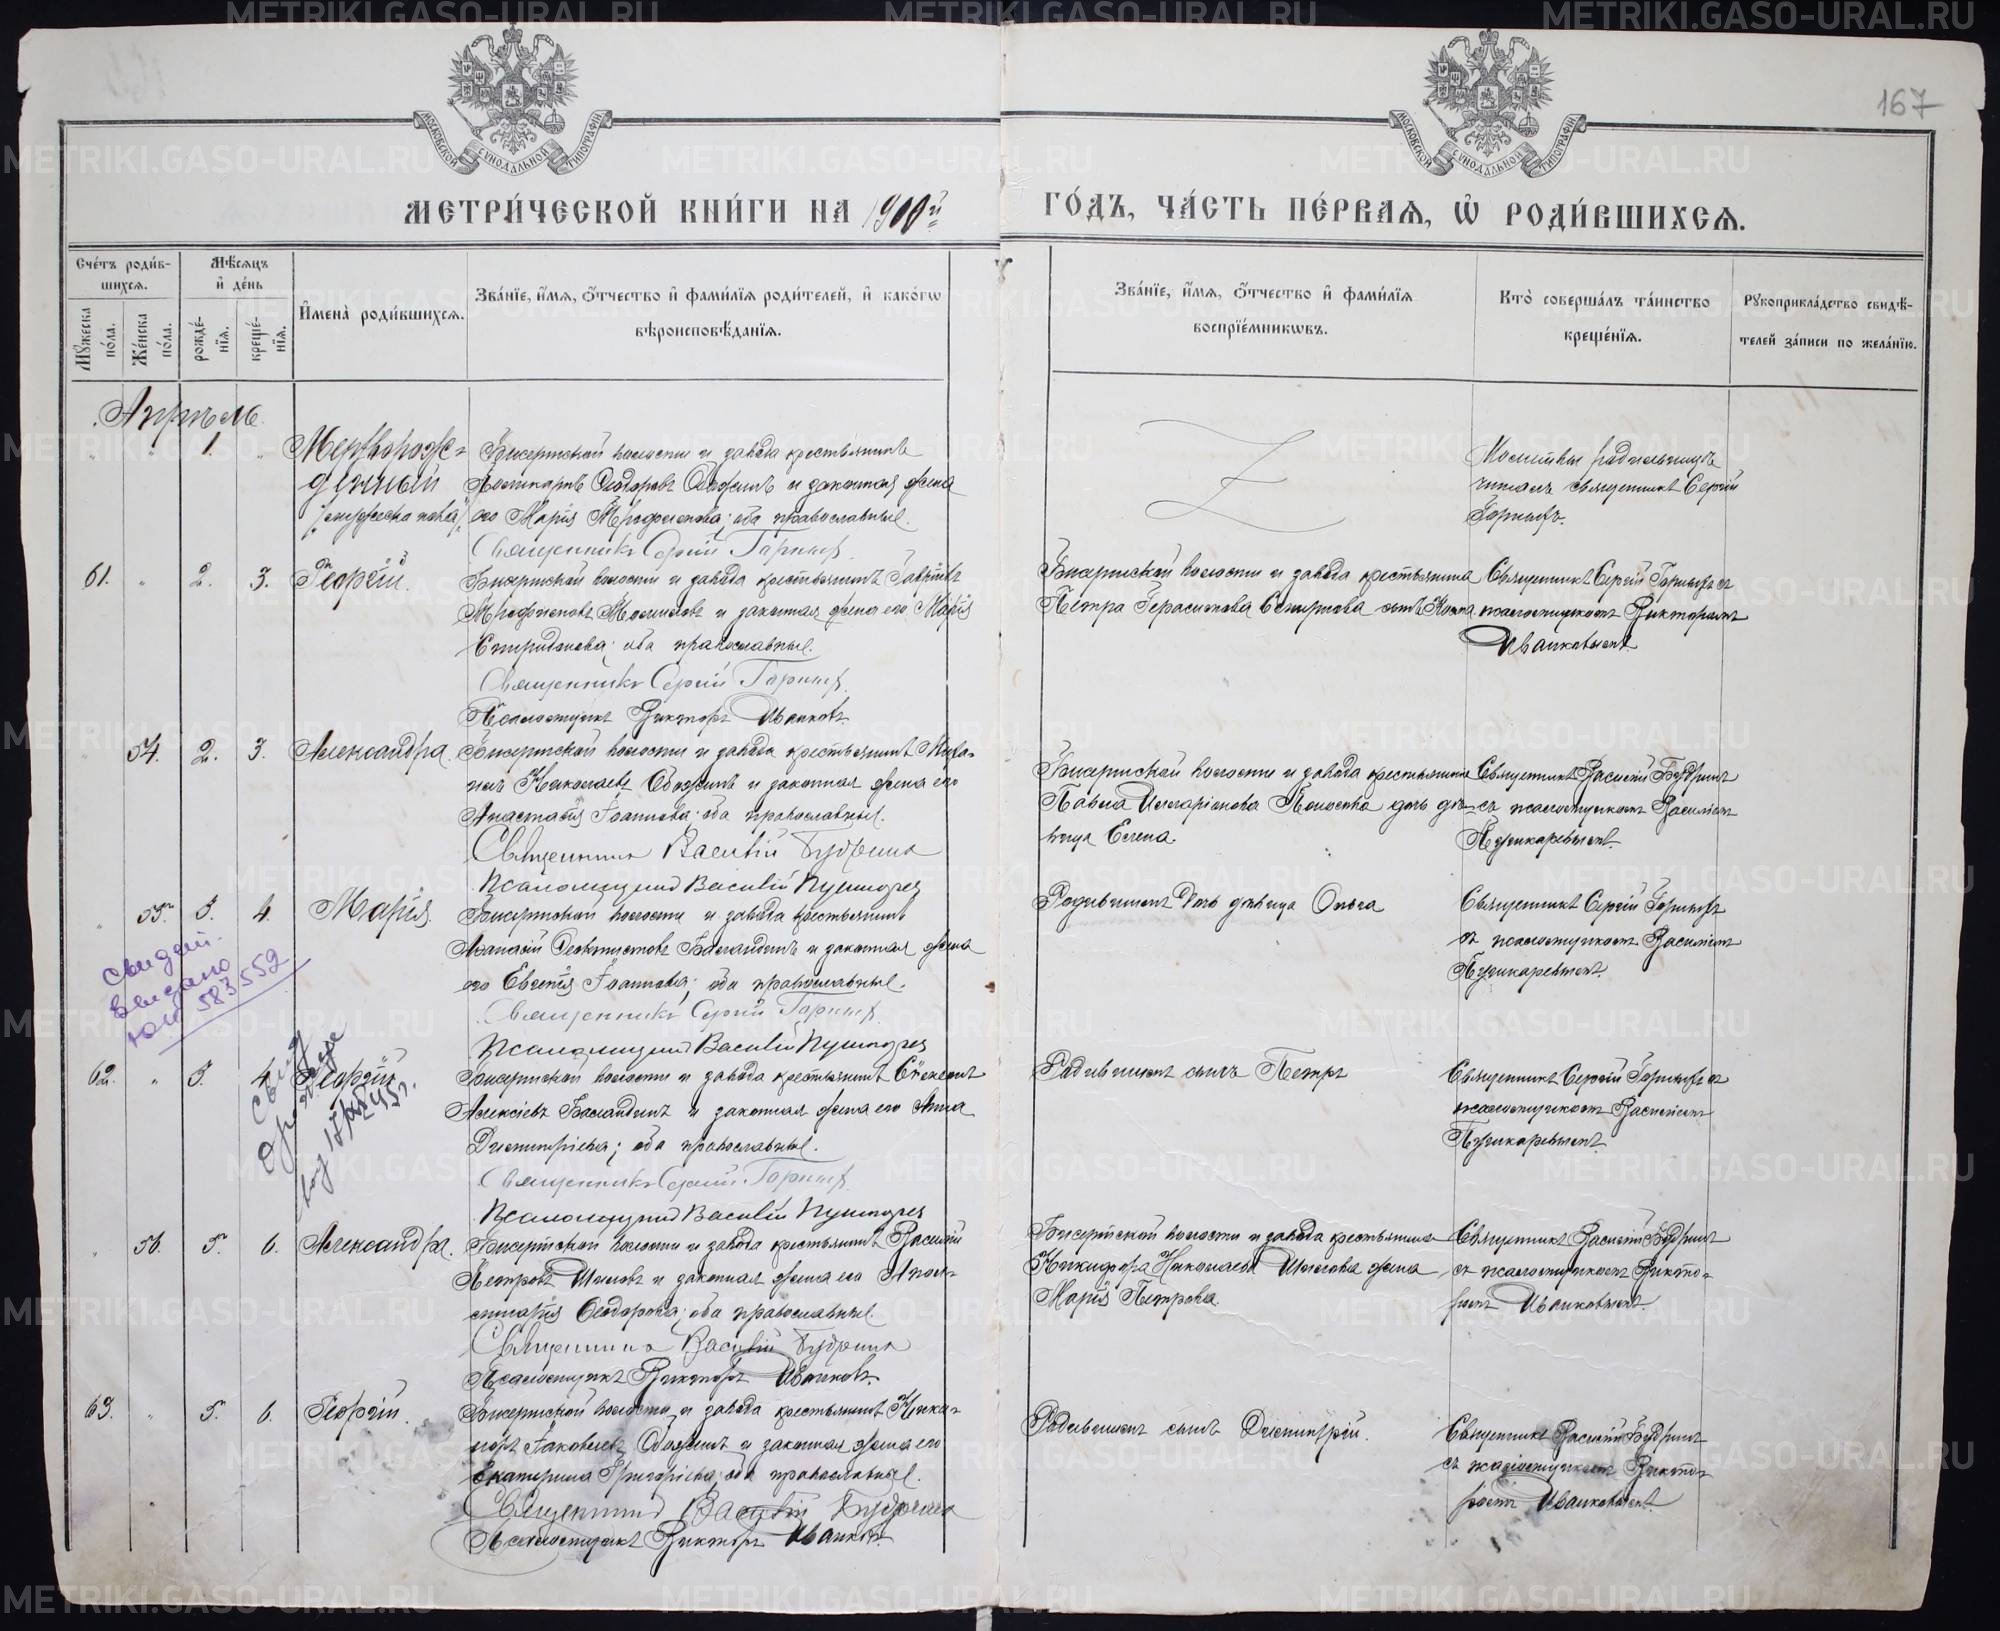 167
МОСКОВСКОЙ СѴНОДАЛЬНОЙ ТИПОГРАФІИ
МОСКОВСКОЙ СѴНОДАЛЬНОЙ ТИПОГРАФІИ
МЕТРИ́ЧЕСКОЙ КНИ́ГИ НА 1900й
ГО́ДЪ, ЧА́СТЬ ПЕ́РВАѦ, Ѡ҆ РОДИ́ВШИХСѦ.
Сче́тъ роди́в-
шихсѧ.
Мѣ́сѧцъ
и҆ де́нь
Мꙋ́жеска по́ла.
Же́нска по́ла.
рожде́-нїѧ.
креще́-нїѧ.
И҆мена̀ роди́вшихсѧ.
Зва́нїе, и҆́мѧ, ѻ҆́тчество и҆ фами́лїѧ роди́телей, и҆ како́гѡ
вѣроисповѣ́данїѧ.
Зва́нїе, и҆́мѧ, ѻ҆́тчество и҆ фами́лїѧ
воспрїе́мникѡвъ.
Кто̀ соверша́лъ та́инство
креще́нїѧ.
Рꙋкоприкла́дство свидѣ́-
телей за́писи по жела́нїю.
Апрѣль
1.
Мертворож-
денный
мужеска пола
Бисертской волости и завода крестьянинъ
Поликарпъ Ѳеодоровъ Обожинъ и законная жена
его Марія Трофимова; оба православные.
Священникъ Сергій Горныхъ
Молитвы родильницѣ
читалъ священникъ Сергій
Горныхъ.
61. " 2. 3. Георгій.
Бисертской волости и завода крестьянинъ Гавріилъ
Митрофановъ и законная жена его Марія
Спиридонова; оба православные.
Священникъ Сергій Горныхъ.
Псаломщикъ Викторъ Иванковъ.
Бисертской волости и завода крестьянина
Петра Герасимова Смирнова сынъ
Священникъ Сергій Горныхъ съ
псаломщикомъ Викторомъ
Иванковымъ.
" 54. 2. 3. Александра.
Бисертской волости и завода крестьянинъ Миха-
илъ Николаевъ Обожинъ и законная жена его
Анастасія Іоаннова; оба православные.
Священникъ Василій Будринъ
Псаломщикъ Василій Пушкаревъ
Бисертской волости и завода крестьянина
Павла Илларіонова дочь дѣ-
вица Елена.
Священникъ Василій Будринъ
съ псаломщикомъ Василіемъ
Пушкаревымъ.
" 55. 3. 4. Марія.
Бисертской волости и завода крестьянинъ
Аѳанасій Ѳеоктистовъ Баландинъ и законная жена
его Евгенія Іоаннова; оба православные.
Священникъ Сергій Горныхъ.
Псаломщикъ Василій Пушкаревъ
Родившей дочь дѣвица Ольга
Священникъ Сергій Горныхъ
съ псаломщикомъ Василіемъ
Пушкаревымъ.
свидет.
выдано
583552
62. " 3. 4. Георгій
Бисертской волости и завода крестьянинъ
Алексіевъ Баландинъ и законная жена его Анна
Димитріева; оба православные.
Священникъ Сергій Горныхъ.
Псаломщикъ Василій Пушкаревъ
сынъ Петръ
Священникъ Сергій Горныхъ съ
псаломщикомъ Василіемъ
Пушкаревымъ.
" 56. 5. 6. Александра.
Бисертской волости и завода крестьянинъ Василій
Петровъ Шиловъ и законная жена его Апол-
линарія Ѳеодорова; оба православные.
Священникъ Василій Будринъ
Псаломщикъ Викторъ Иванковъ.
Бисертской волости и завода крестьянина
Никифора Николаева Шилова жена
Марія Петрова.
Священникъ Василій Будринъ
съ псаломщикомъ Викто-
ромъ Иванковымъ.
63. " 5. 6. Георгій.
Бисертской волости и завода крестьянинъ Ника-
норъ Іаковлевъ Обожинъ и законная жена его
Екатерина Григоріева; оба православные.
Священникъ Василій Будринъ
Псаломщикъ Викторъ Иванковъ.
сынъ Димитрій.
Священникъ Василій Будринъ
съ псаломщикомъ Викто-
ромъ Иванковымъ.
METRIKI.GASO-URAL.RU